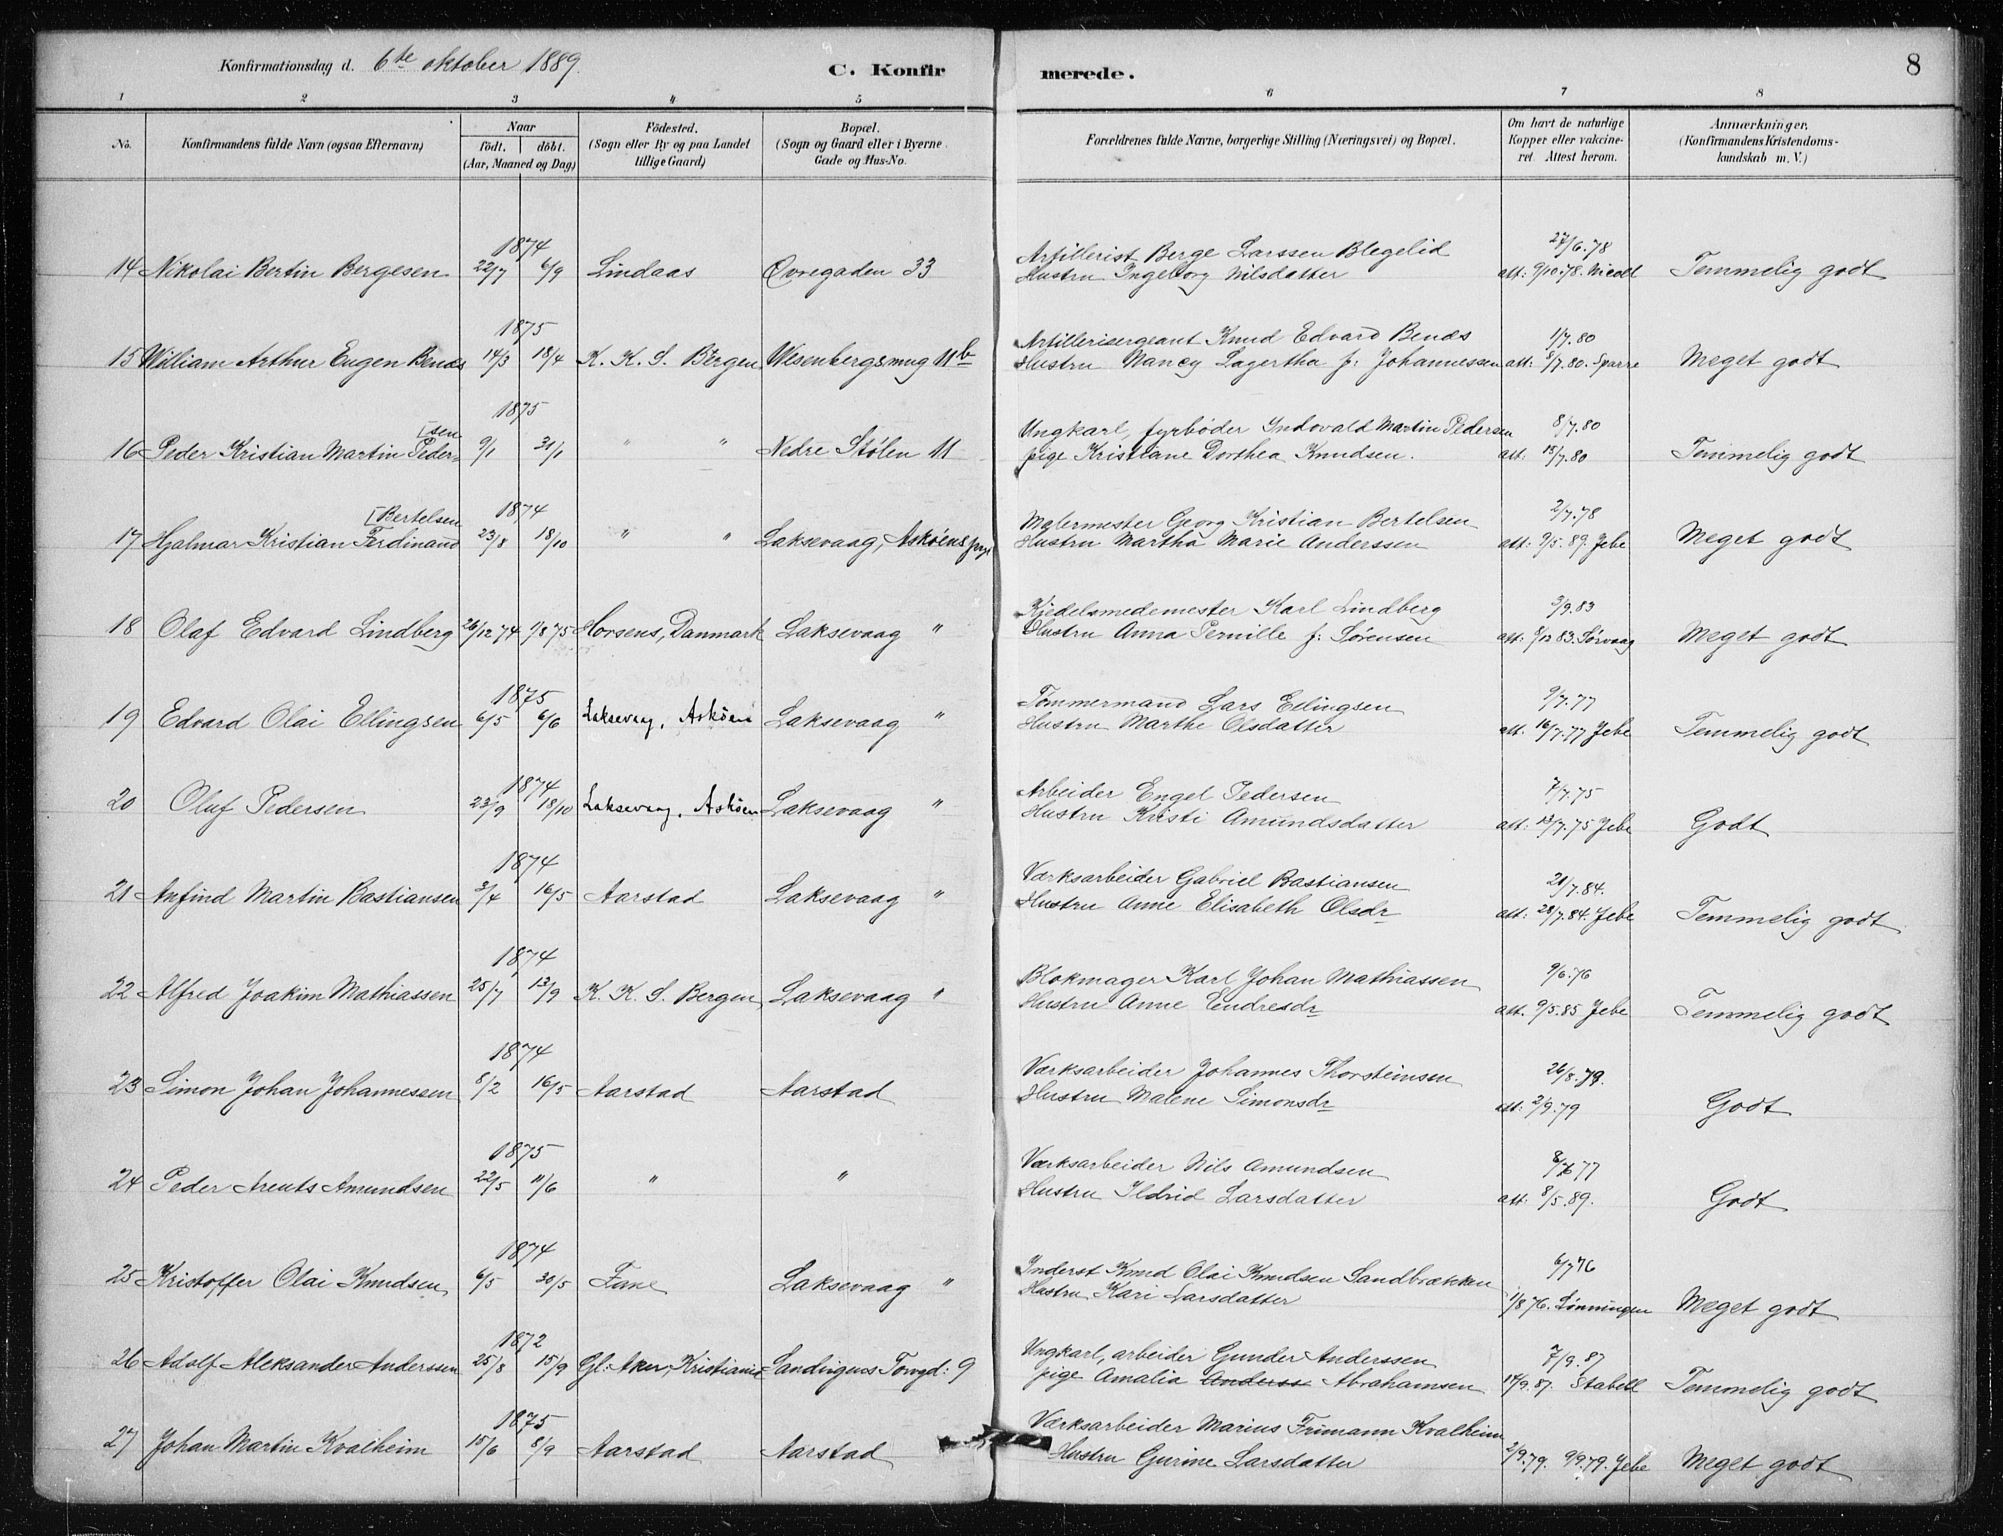 Konfirmationsdag d. 6te oktober 1889.
C. Konfirmerede.
8
1 2 3 4 5 6 7 8
No. Konfirmandens fulde Navn (ogsaa Efternavn) Naar født. døbt. (Aar, Maaned og Dag) Fødested. (Sogn eller By og paa Landet tillige Gaard) Bopæl. (Sogn og Gaard eller i Byerne Gade og Hus-No. Forældrenes fulde Navne, borgerlige Stilling (Næringsvei) og Bopæl. Om havt de naturlige Kopper eller vakcineret. Attest herom. Anmærkninger. (Konfirmandens Kristendomskundskab m. V.)
1874 Artillerist Berge Larssen Blegelid 27/6.78
14 Nikolai Bertin Bergesen 22/7 6/9 Lindaas Øvregaden 33 Hustru Ingeborg Nilsdatter att: 9/10.78. Nicoll Temmelig godt
1875 Artillerisergeant Knud Edvard Benæs 1/7.80
15 William Arthur Eugen Benæs 14/3 18/4 K. K. S. Bergen Wesenbergsmug 11b Hustru Nancy Lagertha f: Johannessen att: 8/7.80. Sparre Meget godt
1875 Ungkarl, fyrbøder Indovald Martin Pedersen 8/7.80
16 Peder Kristian Martin Peder-[sen 9/1 31/1 " " Nedre Stølen 11 pige Kristiane Dorthea Knudsen. att: 18/7.80 Temmelig godt
1874 Malermester Georg Kristian Bertelsen 2/7.78
17 Hjalmar Kristian Ferdinand [Bertelsen 23/8 18/10 " " Laksevaag, Askøens prgj Hustru Martha Marie Anderssen att: 9/5.89. Jebe Meget godt
Kjedelsmedemester Karl Lindberg 3/9.83
18 Olaf Edvard Lindberg 26/12 74 1/8 75 Horsens, Danmark Laksevaag " Hustru Anna Pernille f: Sørensen att: 9/12 83. Sørvaag Meget godt
1875 Tømmermand Lars Ellingsen 9/7.77
19 Edvard Olai Ellingsen 6/5 6/6 Laksevaag, Askøen Laksevaag " Hustru Marthe Olsdatter att: 16/7.77 Jebe Temmelig godt
1874 Arbeider Engel Pedersen 7/7.75
20 Oluf Pedersen 23/9 18/10 Laksevaag, Askøen Laksevaag " Hustru Kristi Amundsdatter att: 13/7.75 Jebe Godt
1874 Værksarbeider Gabriel Bastiansen 21/7.84.
21 Anfind Martin Bastiansen 3/4 16/5 Aarstad Laksevaag " Hustru Anne Elisabeth Olsdr att: 28/7.84. Jebe Temmelig godt
1874 Blokmager Karl Johan Mathiassen 9/6.76
22 Alfred Joakim Mathiassen 25/7 13/9 K. K. S. Bergen Laksevaag " Hustru Anne Endresdr att. 9/5.85 Jebe Temmelig godt
1874 Værksarbeider Johannes Thorsteinsen 26/8.79.
23 Simon Johan Johannessen 8/2 16/5 Aarstad Aarstad Hustru Malene Simonsdr att: 2/9.79 Godt
1875 Værksarbeider Nils Amundsen 77
24 Peder Arents Amundsen 22/5 11/6 " " Hustru Ildrid Larsdatter att: 8/5.89. Godt
1874 Inderst Knud Olai Knudsen Sandbrækken 6/7 76
25 Kristoffer Olai Knudsen 6/5 30/5 Fane Laksevaag " Hustru Kari Larsdatter 1/8 76. Lønningen Meget godt
1872 Ungkarl, arbeider Gunder Anderssen 7/9.87
26 Adolf Aleksander Anderssen 25/8 15/9 Gl: Aker, Kristiania Sandvigens Torvgd: 9 pige Amalia Anderss Abrahamsen 17/9.87. Stabell Temmelig godt
1875 Værksarbeider Marius Frimann Kvalheim
27 Johan Martin Kvalheim 15/6 8/9 Aarstad Aarstad Hustru Gurine Larsdatter 2/9.79. 9/9.79. Jebe Meget godt